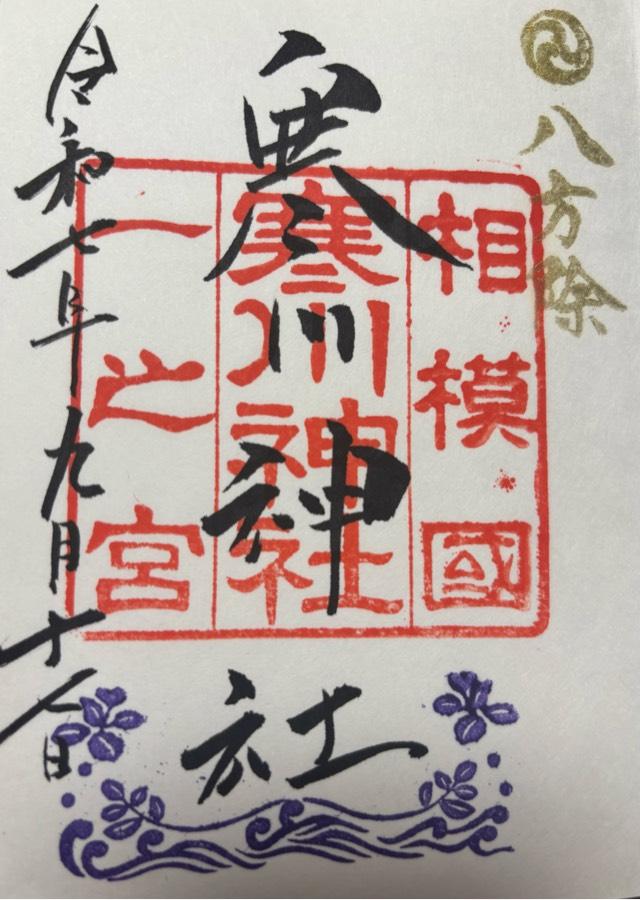 八方除
相模國
寒川神社
一之宮
寒川神社
令和七年九月十八日